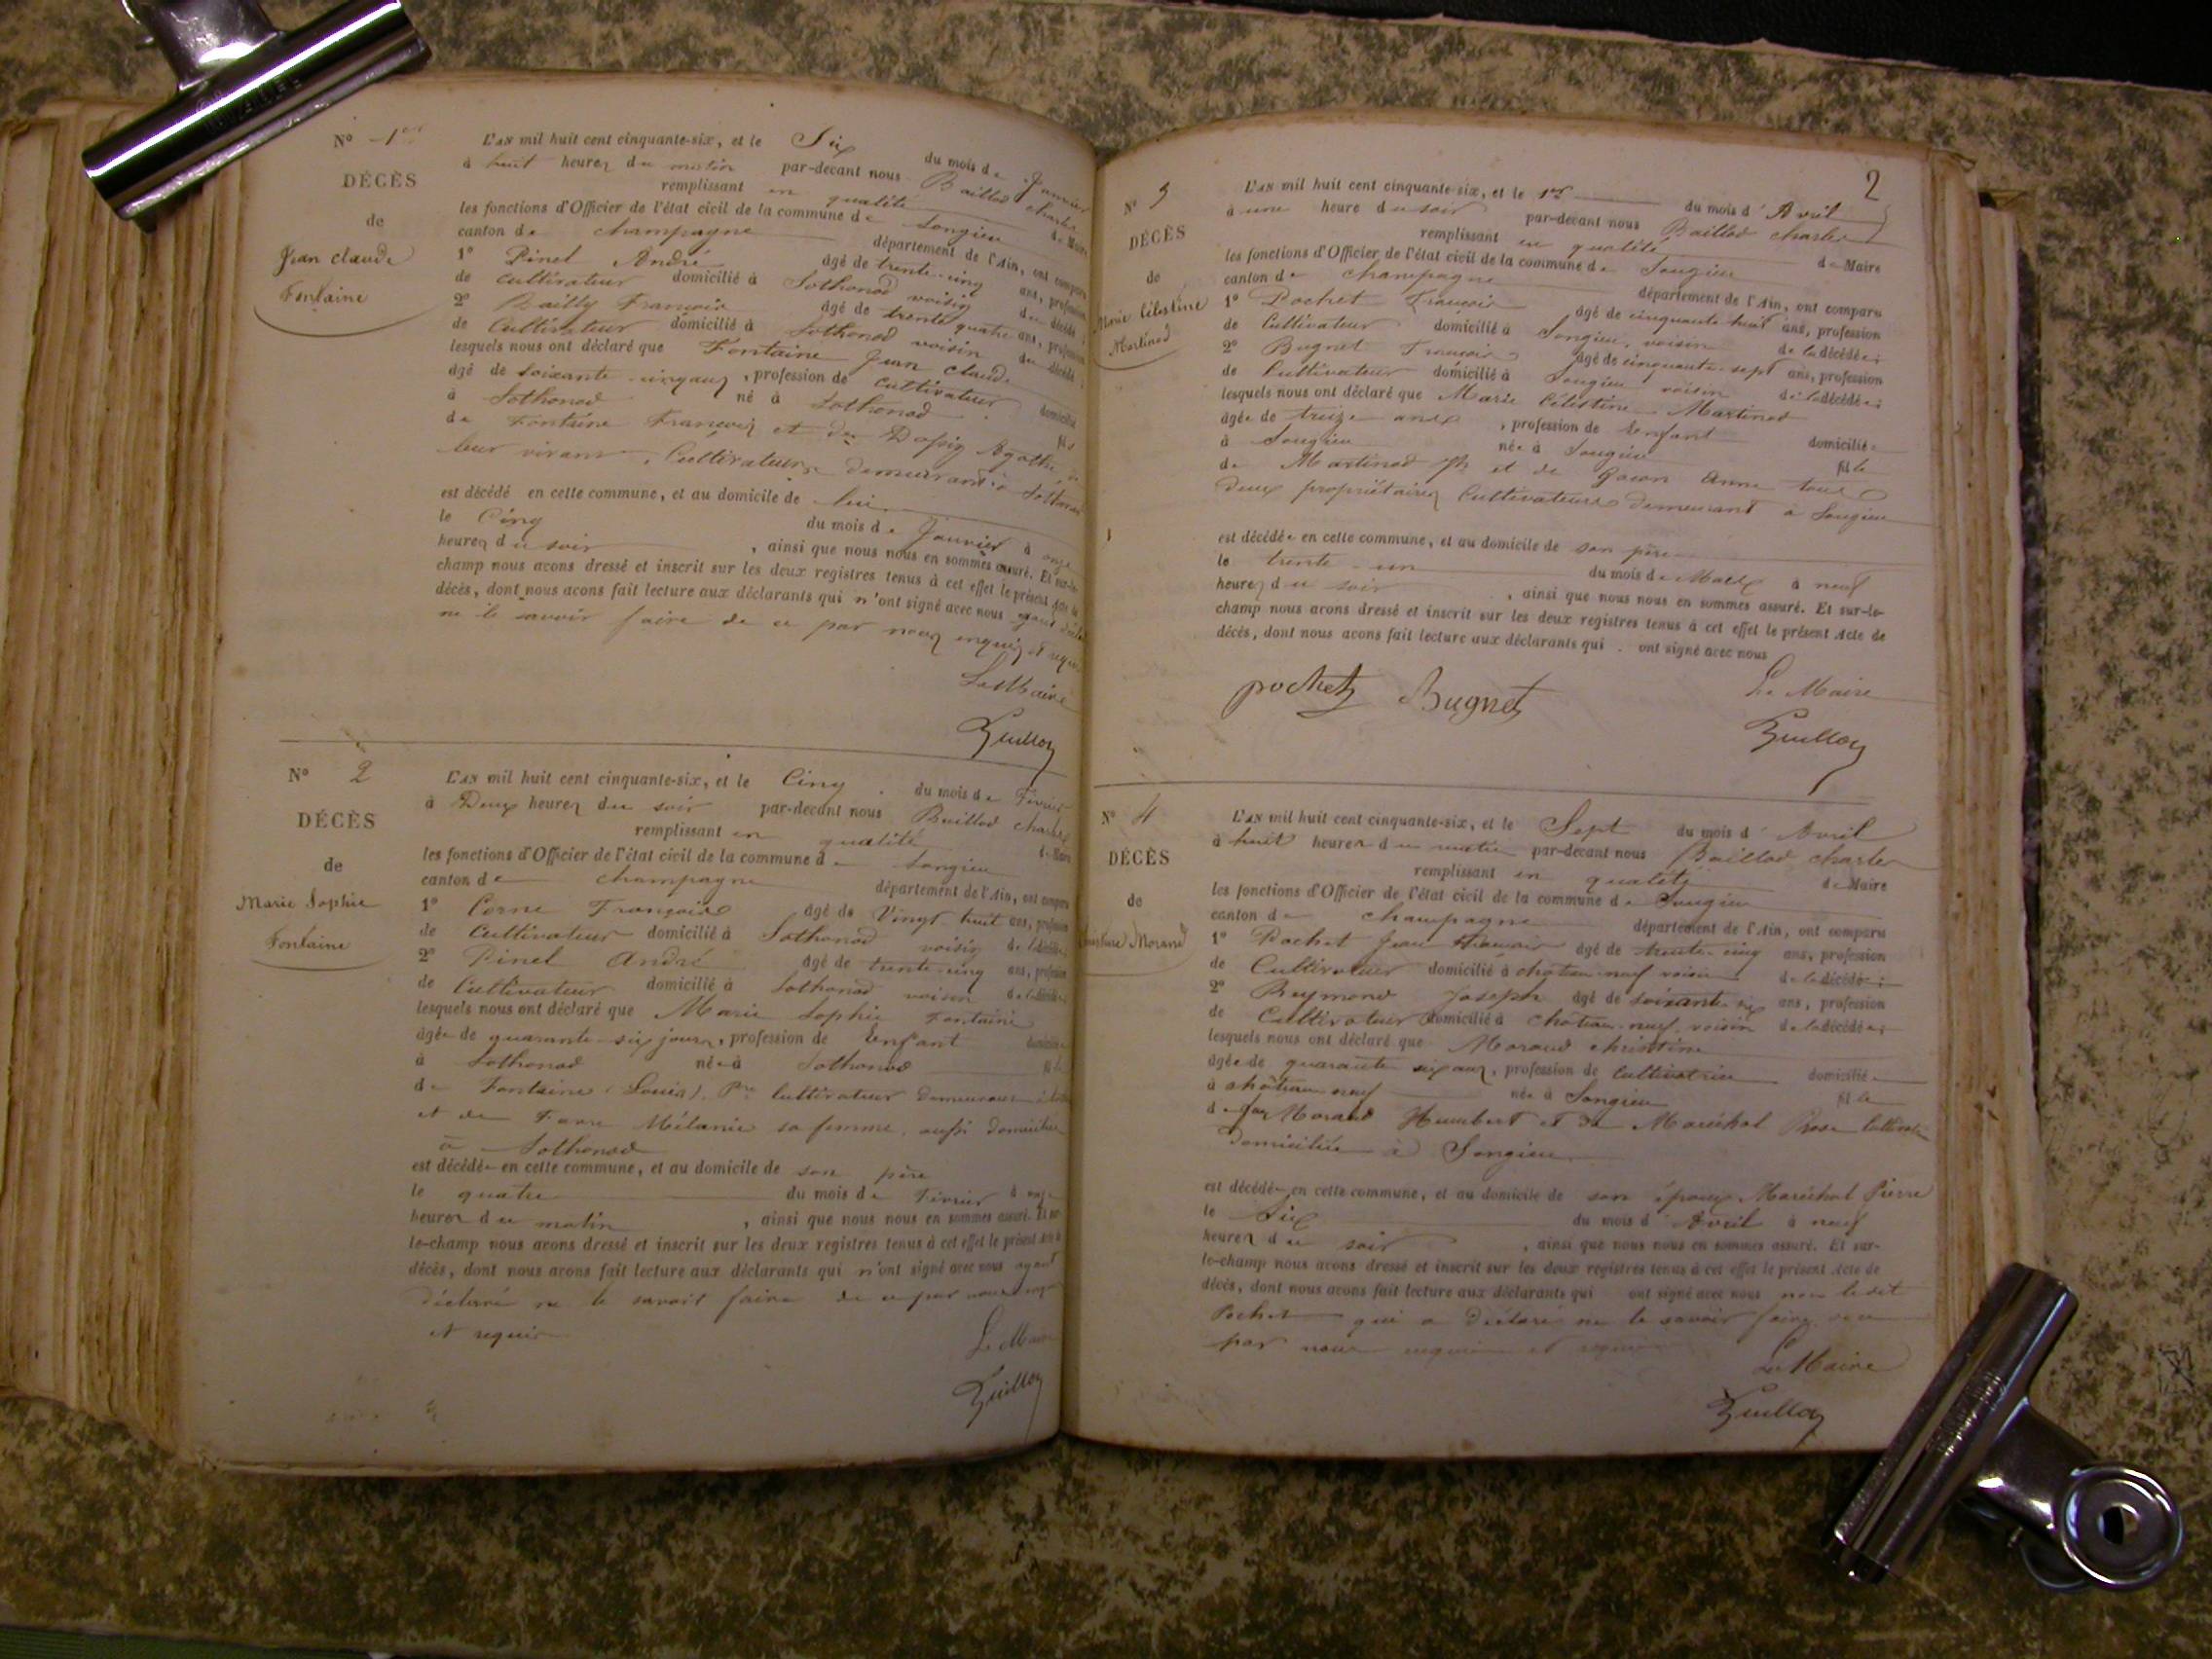 N° 1er
DÉCÈS
de
Jean claude
Fontaine
L'AN mil huit cent cinquante-six, et le Six du mois de Janvier
à huit heures du matin par-devant nous Baillod charles
remplissant en qualité de Maire
les fonctions d'Officier de l'état civil de la commune de Songieu
canton de champagne département de l'Ain, ont comparu
1° Pinel André âgé de trente-cinq ans, profession
de cultivateur domicilié à Sothonod voisin du décédé;
2° Bailly François âgé de trente quatre ans, profession
de Cultivateur domicilié à Sothonod voisin du décédé;
lesquels nous ont déclaré que Fontaine Jean claude
âgé de soixante-cinq ans, profession de cultivateur domicilié
à Sothonod né à Sothonod fils
de Fontaine François et de Agathe
leur vivant, Cultivateurs demeurant à Sothonod
est décédé en cette commune, et au domicile de lui
le Cinq du mois de Janvier à onze
heures du soir, ainsi que nous nous en sommes assuré. Et sur-le-
champ nous avons dressé et inscrit sur les deux registres tenus à cet effet le présent Acte de
décès, dont nous avons fait lecture aux déclarants qui n'ont signé avec nous ayant
ne le savoir faire de ce par nous enquis et requis
Le Maire
N° 2
DÉCÈS
de
Marie Sophie
Fontaine
L'AN mil huit cent cinquante-six, et le Cinq du mois de Février
à Deux heures du soir par-devant nous Baillod charles
remplissant en qualité de Maire
les fonctions d'Officier de l'état civil de la commune de Songieu
canton de champagne département de l'Ain, ont comparu
1° Corne François âgé de Vingt huit ans, profession
de Cultivateur domicilié à Sothonod voisin de la décédée;
2° Pinel André âgé de trente-cinq ans, profession
de Cultivateur domicilié à Sothonod voisin de la décédée;
lesquels nous ont déclaré que Marie Sophie Fontaine
âgée de quarante-six jours, profession de Enfant domiciliée
à Sothonod née à Sothonod fille
de Fontaine (Louis) Pre Cultivateur demeurant à
et de Favre Mélanie sa femme, aussi domiciliée
à Sothonod
est décédée en cette commune, et au domicile de son père
le quatre du mois de Février à onze
heures du matin, ainsi que nous nous en sommes assuré. Et sur-
le-champ nous avons dressé et inscrit sur les deux registres tenus à cet effet le présent Acte de
décès, dont nous avons fait lecture aux déclarants qui n'ont signé avec nous ayant
déclaré ne le savoir faire de ce par nous enquis
et requis
Le Maire
2
N° 3
DÉCÈS
de
Marie Célestine
Martinod
L'AN mil huit cent cinquante-six, et le 1er du mois d'Avril
à une heure du soir par-devant nous Baillod charles
remplissant en qualité de Maire
les fonctions d'Officier de l'état civil de la commune de Songieu
canton de champagne département de l'Ain, ont comparu
1° Pochet François âgé de cinquante huit ans, profession
de Cultivateur domicilié à Songieu, voisin de la décédée;
2° Bugnet François âgé de cinquante-sept ans, profession
de Cultivateur domicilié à Songieu voisin de la décédée;
lesquels nous ont déclaré que Marie Célestine Martinod
âgée de treize ans, profession de Enfant domiciliée
à Songieu née à Songieu fille
de Martinod Jh et de Gacon Anne tous
deux propriétaires Cultivateurs demeurant à Songieu
est décédée en cette commune, et au domicile de son père
le trente-un du mois de Mars à neuf
heures du soir, ainsi que nous nous en sommes assuré. Et sur-le-
champ nous avons dressé et inscrit sur les deux registres tenus à cet effet le présent Acte de
décès, dont nous avons fait lecture aux déclarants qui ont signé avec nous
pochet Bugnet Le Maire
N° 4
DÉCÈS
de
Morand
L'AN mil huit cent cinquante-six, et le Sept du mois d'Avril
à huit heures du matin par-devant nous Baillod charles
remplissant en qualité de Maire
les fonctions d'Officier de l'état civil de la commune de Songieu
canton de champagne département de l'Ain, ont comparu
1° Pochet Jean François âgé de trente-cinq ans, profession
de Cultivateur domicilié à château-neuf voisin de la décédée;
2° Reymond Joseph âgé de soixante-six ans, profession
de Cultivateur domicilié à château-neuf voisin de la décédée;
lesquels nous ont déclaré que Morand christine
âgée de quarante six ans, profession de Cultivatrice domiciliée
à château neuf née à Songieu fille
de feu Morand Humbert et de Maréchal Rose
domiciliée à Songieu
est décédée en cette commune, et au domicile de son époux Maréchal Pierre
le Six du mois d'Avril à neuf
heures du soir, ainsi que nous nous en sommes assuré. Et sur-
le-champ nous avons dressé et inscrit sur les deux registres tenus à cet effet le présent Acte de
décès, dont nous avons fait lecture aux déclarants qui ont signé avec nous non ledit
Pochet qui a déclaré ne le savoir faire de ce
par nous enquis et requis
Le Maire